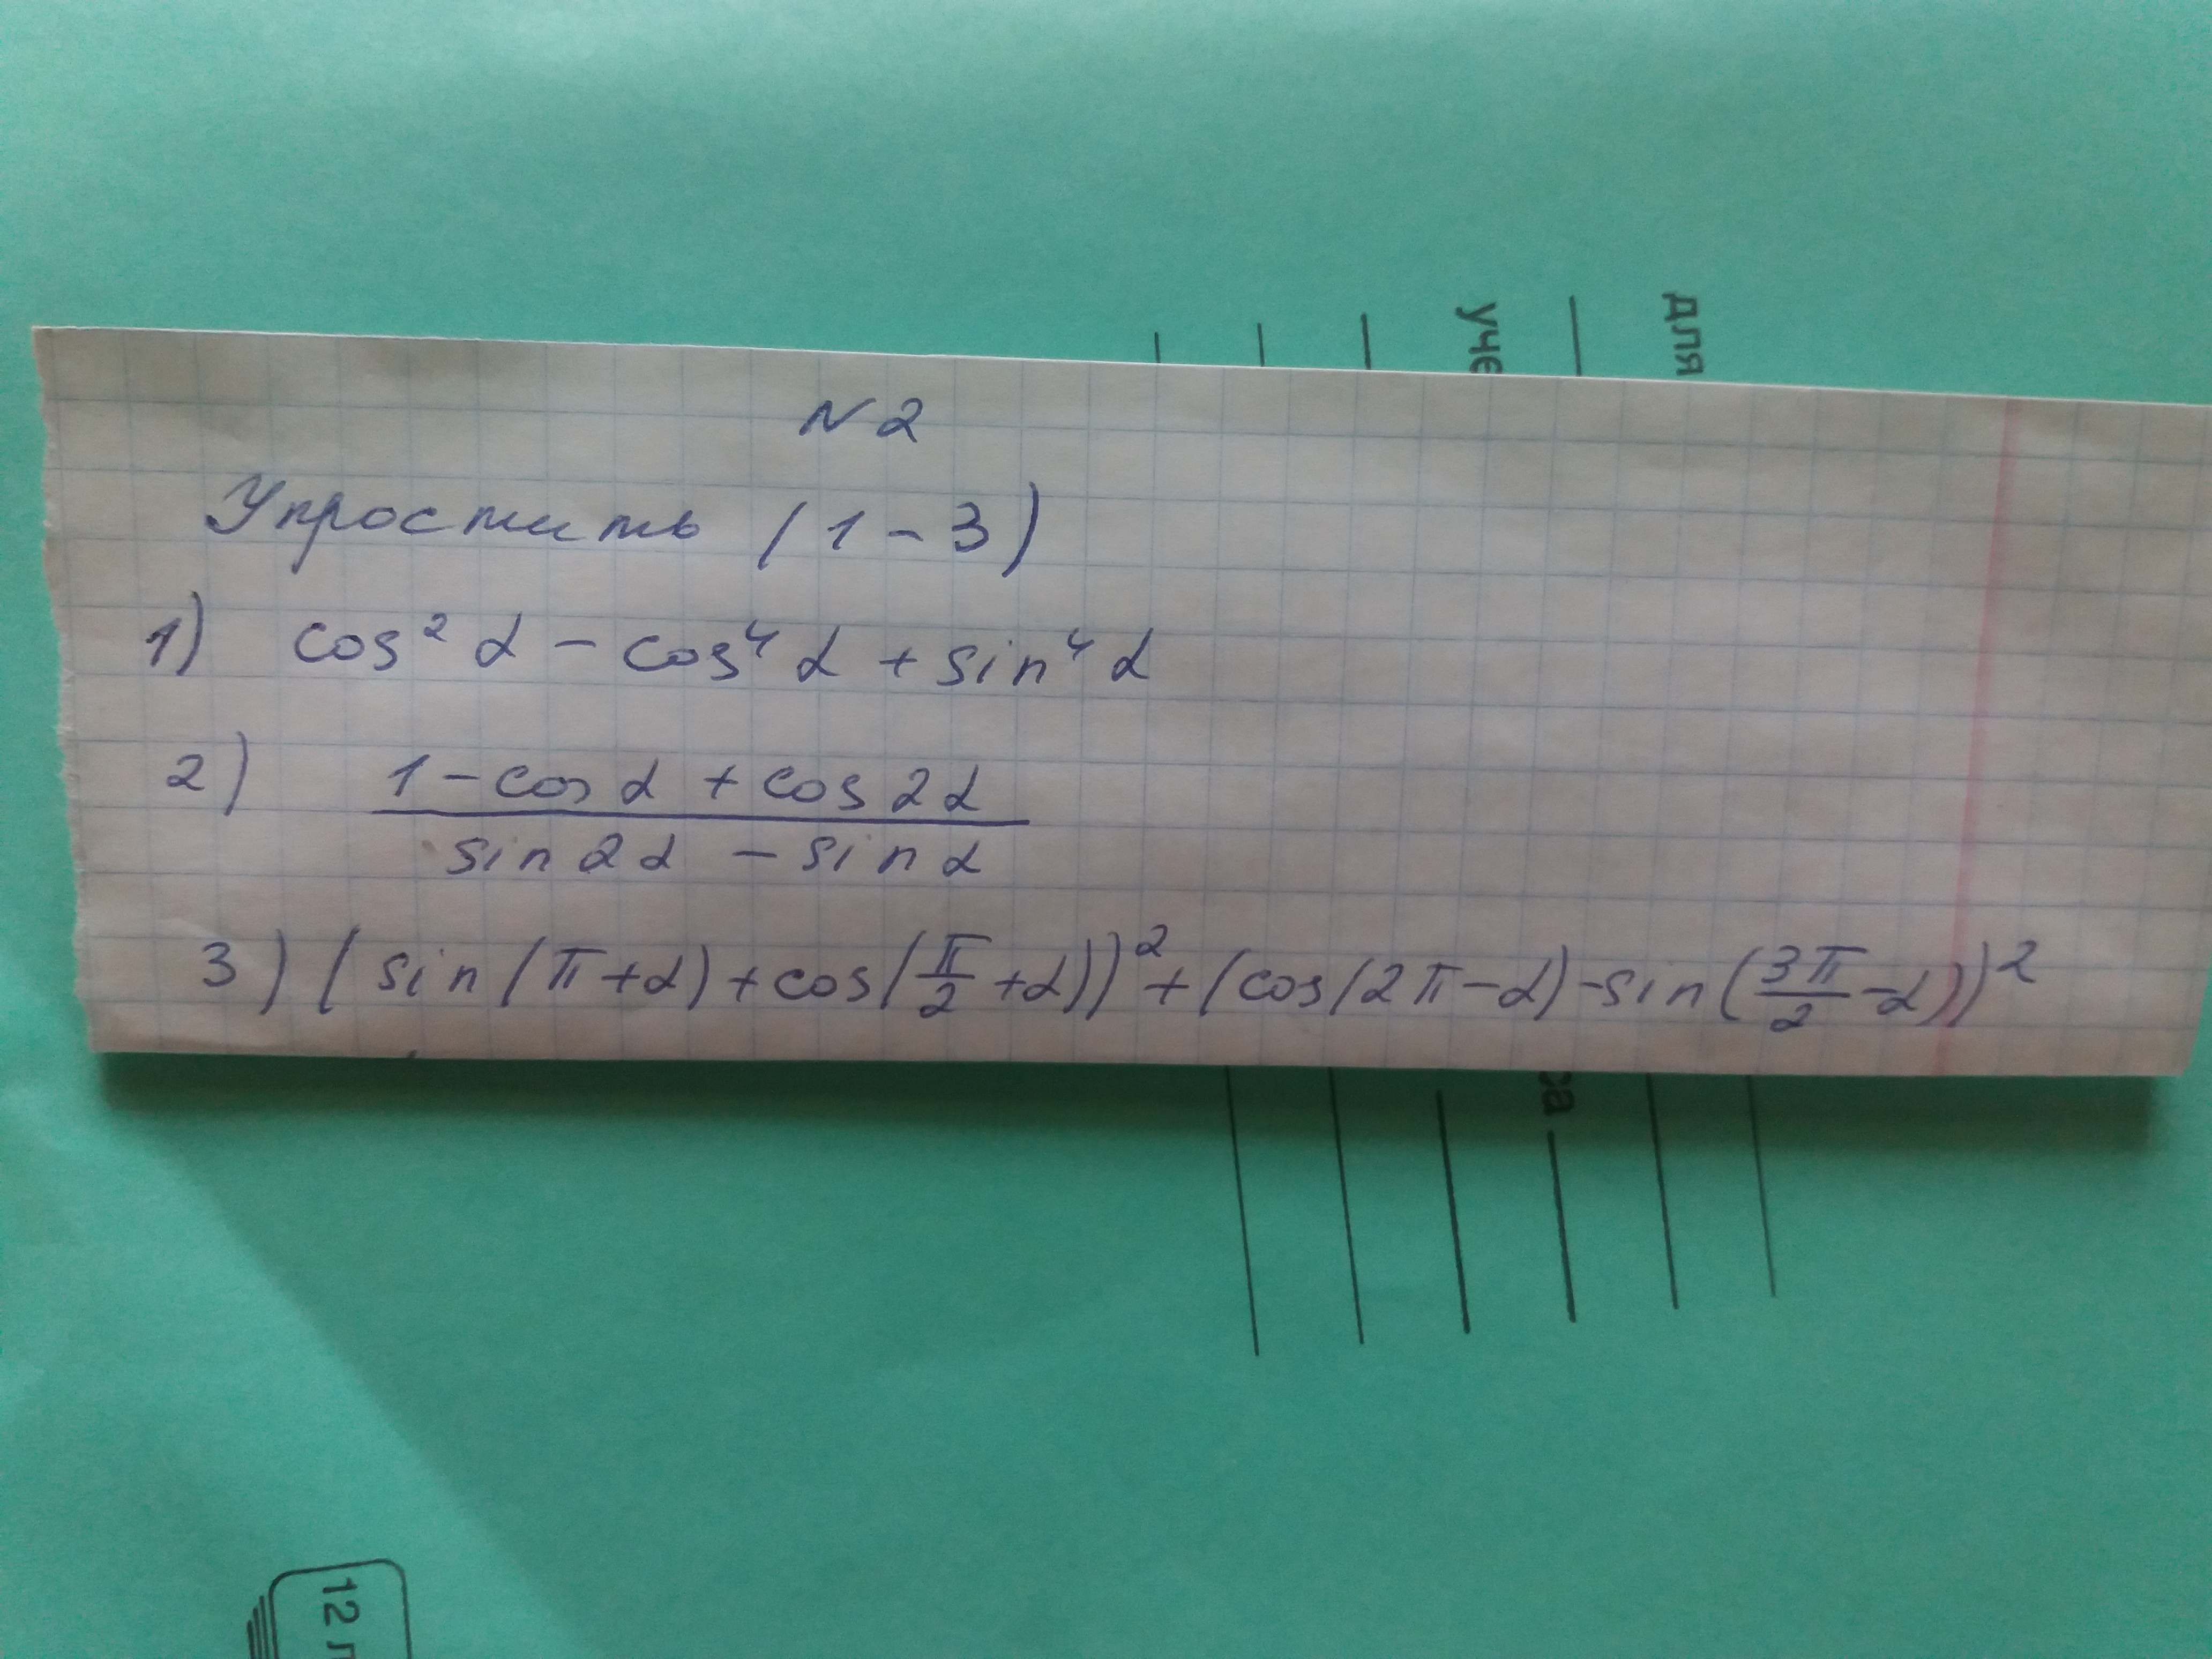 для
уче
N2
Упростить (1-3)
1) cos² α - cos⁴ α + sin⁴ α
2) (1 - cos α + cos 2α) / (sin 2α - sin α)
3) (sin(π+α) + cos(π/2 + α))² + (cos(2π - α) - sin(3π/2 - α))²
са
12 л